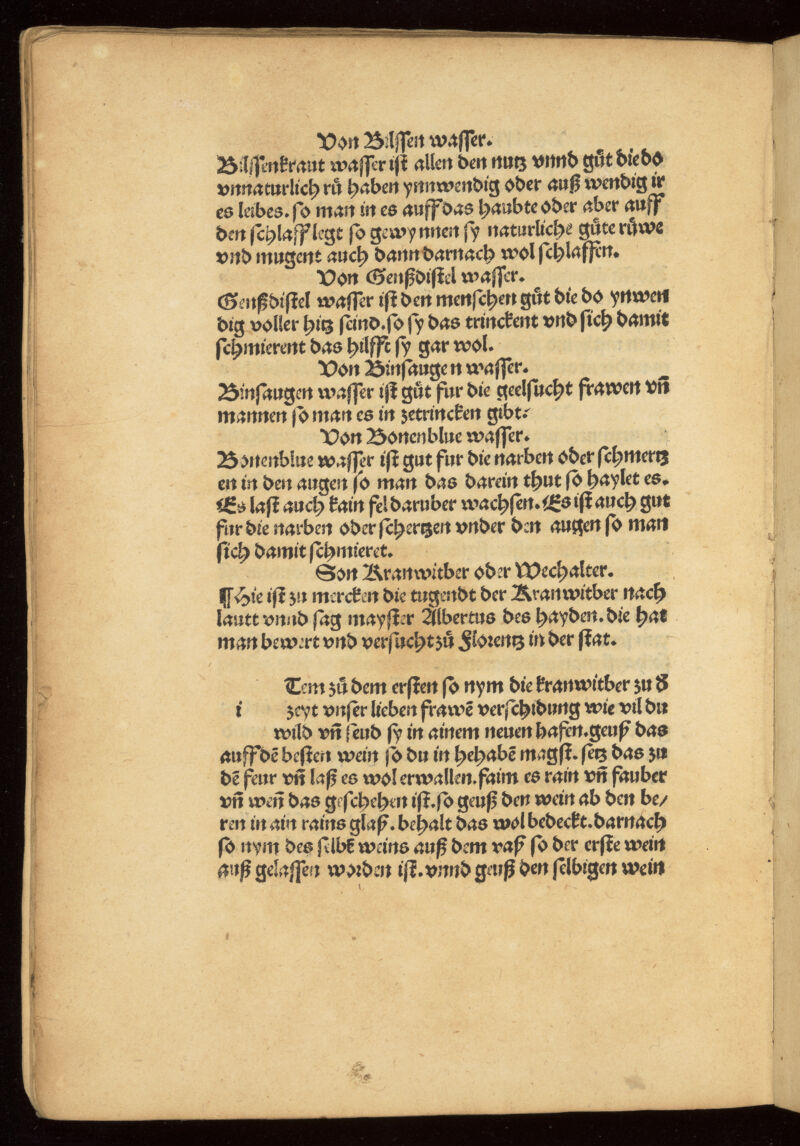 Von Bilſſen waſſer.
Bilſſenkraut waſſer iſt allen den nutz vnnd gůt die do
vnnaturlich rů haben ynnwendig oder auß wendig ir
es leibes. ſo man in es auff das haubte oder aber auff
den ſchlaff legt ſo gewynnen ſy naturliche gůte růwe
vnd mugent auch dann darnach wol ſchlaffen.
Von Genßdiſtel waſſer.
Genßdiſtel waſſer iſt den menſchen gůt die do ynwen
dig voller hitz ſeind. ſo ſy das trinckent vnd ſich damit
ſchmierent das hilfft ſy gar wol.
Von Binſaugen waſſer.
Binſaugen waſſer iſt gůt fur die geelſucht frawen vñ
mannen ſo man es in zetrincken gibt.
Von Bonenblue waſſer.
Bonenblue waſſer iſt gut fur die narben oder ſchmertz
en in den augen ſo man das darein thut ſo haylet es.
Es laſt auch kain fel daruber wachſen. Es iſt auch gut
fur die narben oder ſchertzen vnder den augen ſo man
ſich damit ſchmieret.
Son Kranwitber oder Wechalter.
¶ Hie iſt zu mercken die tugendt der Kranwitber nach
lautt vnnd ſag mayſter Albertus des hayden. die hat
man bewert vnd verſucht zů Florentz in der ſtat.
Tem zů dem erſten ſo nym die kranwitber zu d̕
i zeyt vnſer lieben frawē verſchidung wie vil du
wild vñ ſeud ſy in ainem neuen hafen. geuß das
auff dē beſten wein ſo du in hehabē magſt. ſetz das zu
dē feur vñ laß es wol erwallen. faim es rain vñ ſauber
vñ weñ das geſchehen iſt. ſo geuß den wein ab den be/
ren in ain rains glaß. behalt das wol bedeckt. darnach
ſo nym des ſelbē weins auß dem vaß ſo der erſte wein
auß gelaſſen worden iſt. vnnd geuß den ſelbigen wein